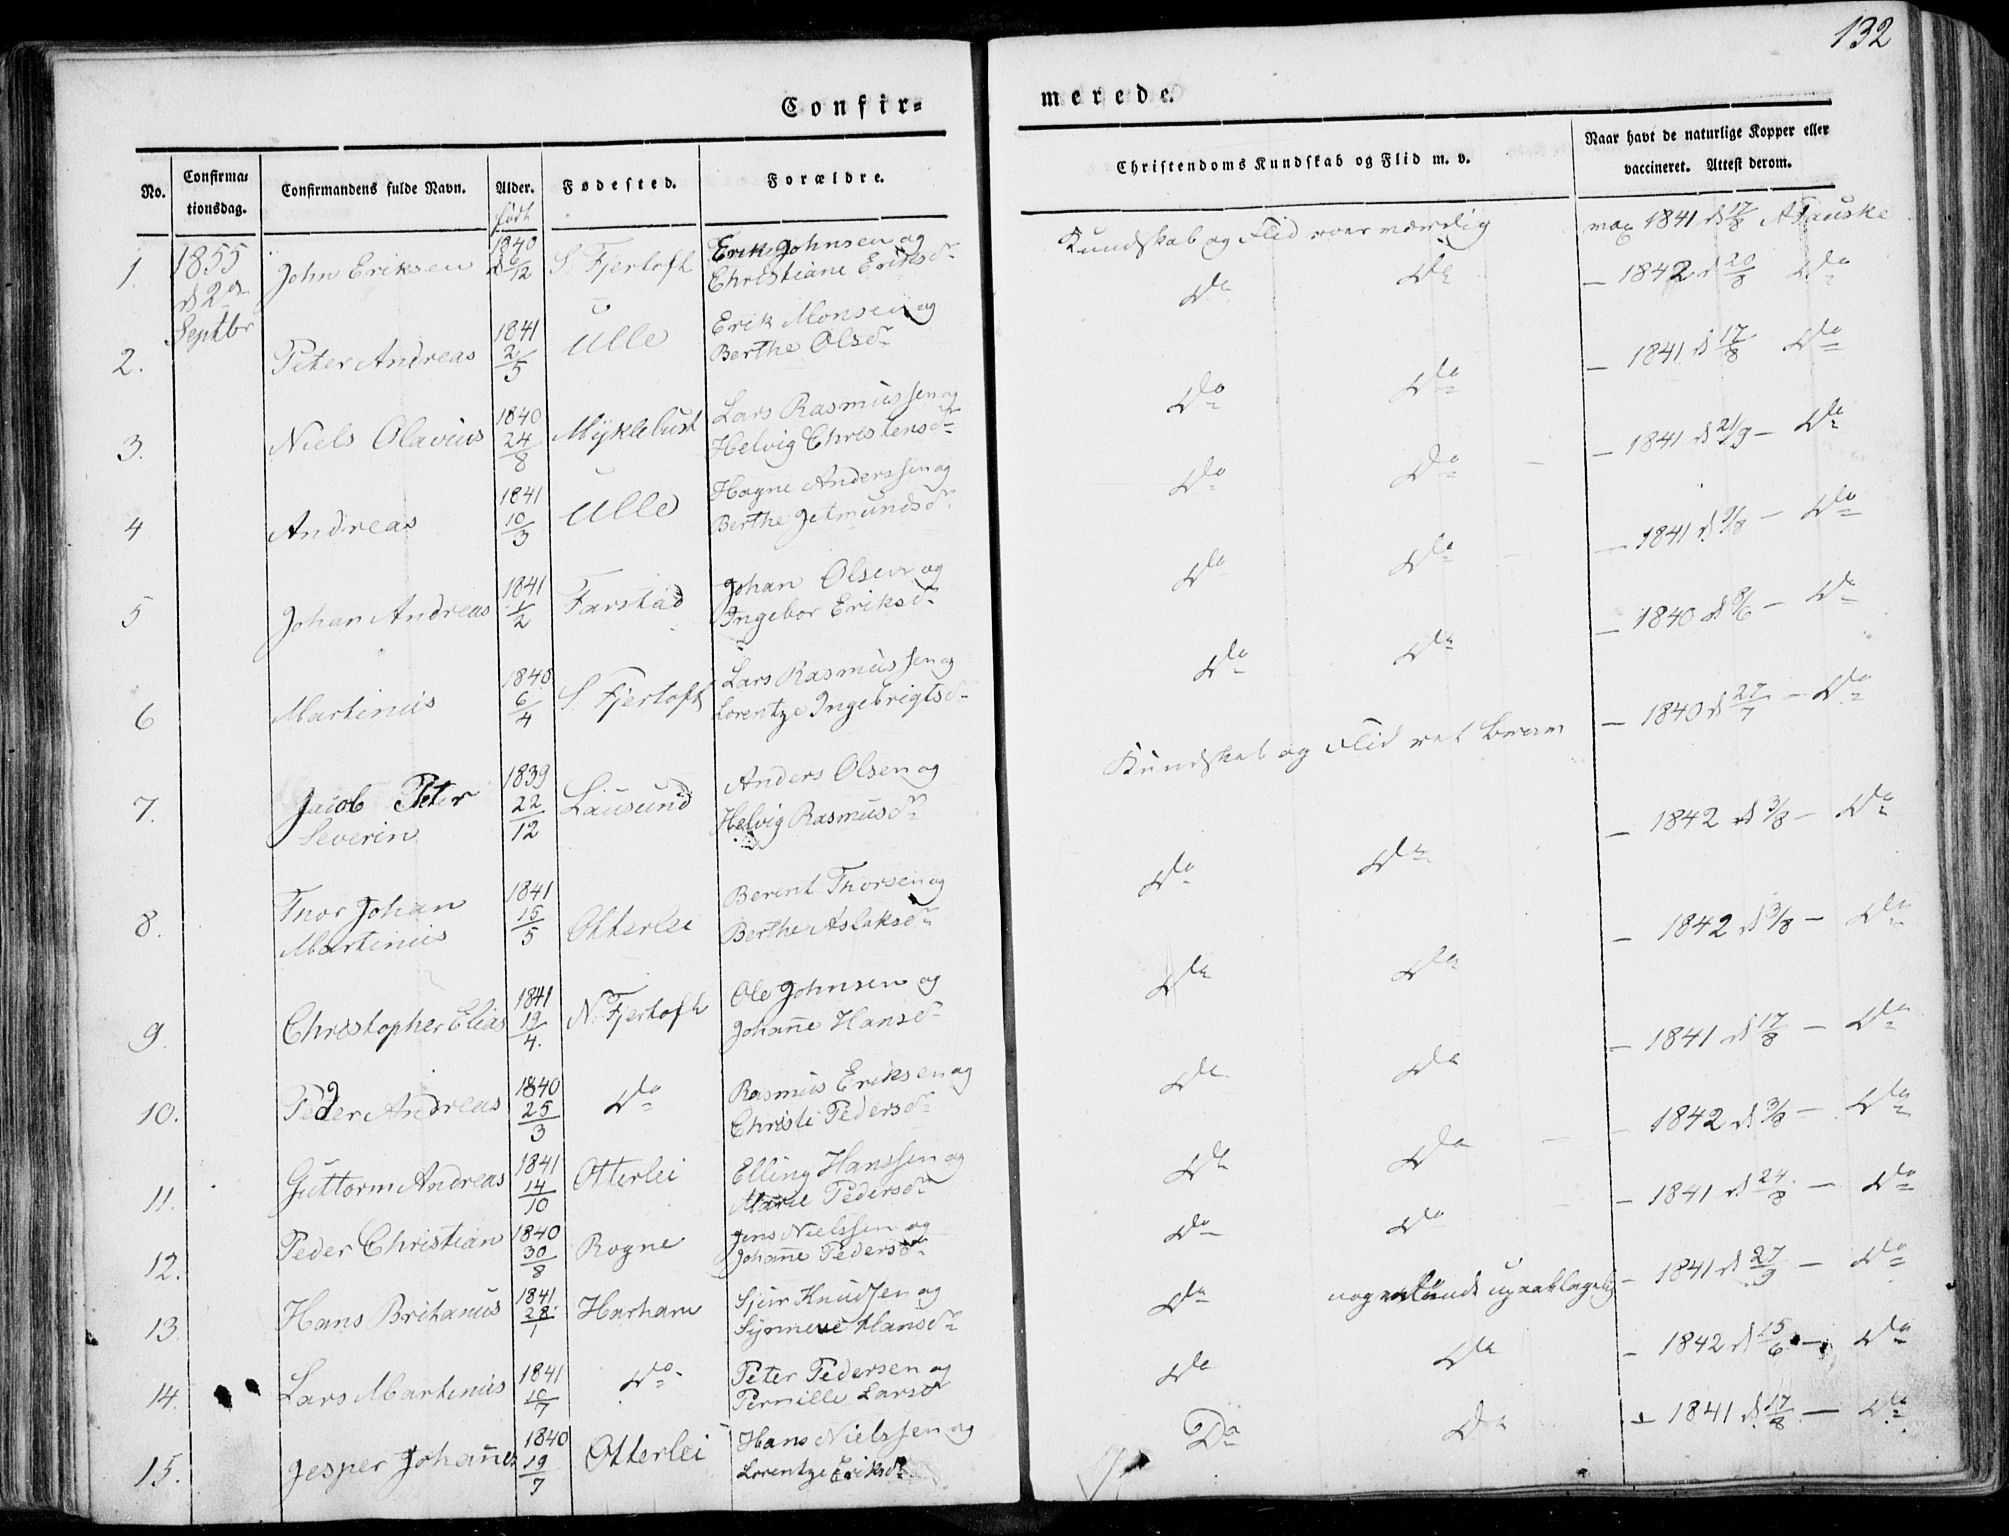 132
Confir-
merede.
No.
Confirma-
tionsdag.
Confirmandens fulde Navn.
Alder.
Fødested.
Forældre.
Christendoms Kundskab og Flid m. v.
Naar havt de naturlige Kopper eller
vaccineret. Attest derom.
født
1. 1855 John Eriksen 1840 6/12 S. Fjertoft Erik Johnsen og
d 2den Christiane Eriksdr
Septbr
Kundskab og Flid meer værdig vac 1841 d 17/8 A Tauske
2. Peter Andreas 1841 2/5 Ulle Erik Monsen og
Berthe Olsdr
Do Do — 1842 d 20/8 Do
3. Niels Olavius 1840 24/8 Myklebust Lars Rasmussen og
Helvig Christensdr
Do Do — 1841 d 17/8 Do
4 Andreas 1841 10/3 Ulle Hagne Anderssen og
Berthe Jetmundsdr
Do Do — 1841 d 21/9 — Do
5 Johan Andreas 1841 1/2 Farstad Johan Olsen og
Ingebor Eriksdr
Do Do — 1841 d 9/8 — Do
6 Martinus 1840 6/4 S. Fjertoft Lars Rasmussen og
Lorentze Ingebrigtsdr
Do Do — 1840 d 8/6 — Do
7. Jacob Peter 1839 22/12 Lausund Anders Olsen og
Severin Helvig Rasmusdr
Kundskab og Flid — 1840 d 27/7 — Do
8. Thor Johan 1841 15/5 Otterlei Berent Thorsen og
Martinus Berthe Aslaksdr
Do Do — 1842 d 3/8 — Do
9. Christopher Elias 1841 19/4 N. Fjertoft Ole Johnsen og
Johanne Hansdr
Do Do — 1842 d 3/8 — Do
10. Peder Andreas 1840 25/3 Do Rasmus Eriksen og
Christi Pedersdr
Do Do — 1841 d 17/8 — Do
11. Guttorm Andreas 1841 14/10 Otterlei Elling Hanssen og
Marie Pedersdr
Do Do — 1842 d 3/8 — Do
12. Peder Christian 1840 30/8 Rogne Jens Nielssen og
Johanne Pedersdr
Do Do — 1841 d 24/8 — Do
13. Hans Britanus 1841 28/1 Harham Sjur Knudsen og
Synneve Hansdr
Do — 1841 d 27/9 — Do
14. Lars Martinus 1841 10/7 Do Peter Pedersen og
Pernille Larsdr
Do Do — 1842 d 15/6 — Do
15. Jesper Johannes 1840 19/7 Otterlei Hans Nielssen og
Lorentze Eriksdr
Do Do — 1841 d 17/8 — Do